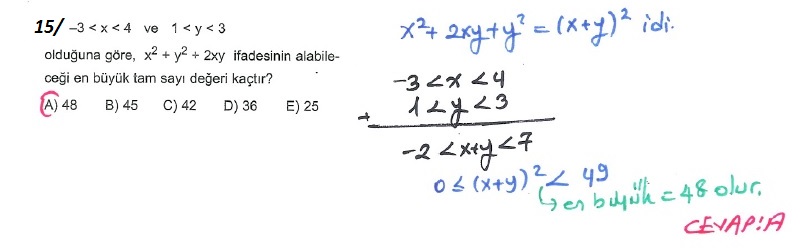 15/ –3 < x < 4 ve 1 < y < 3
olduğuna göre, x² + y² + 2xy ifadesinin alabile-
ceği en büyük tam sayı değeri kaçtır?
A) 48 B) 45 C) 42 D) 36 E) 25
x² + 2xy + y² = (x+y)² idi.
-3 < x < 4
1 < y < 3
+
-2 < x+y < 7
0 ≤ (x+y)² < 49
↳ en büyük = 48 olur.
CEVAP: A